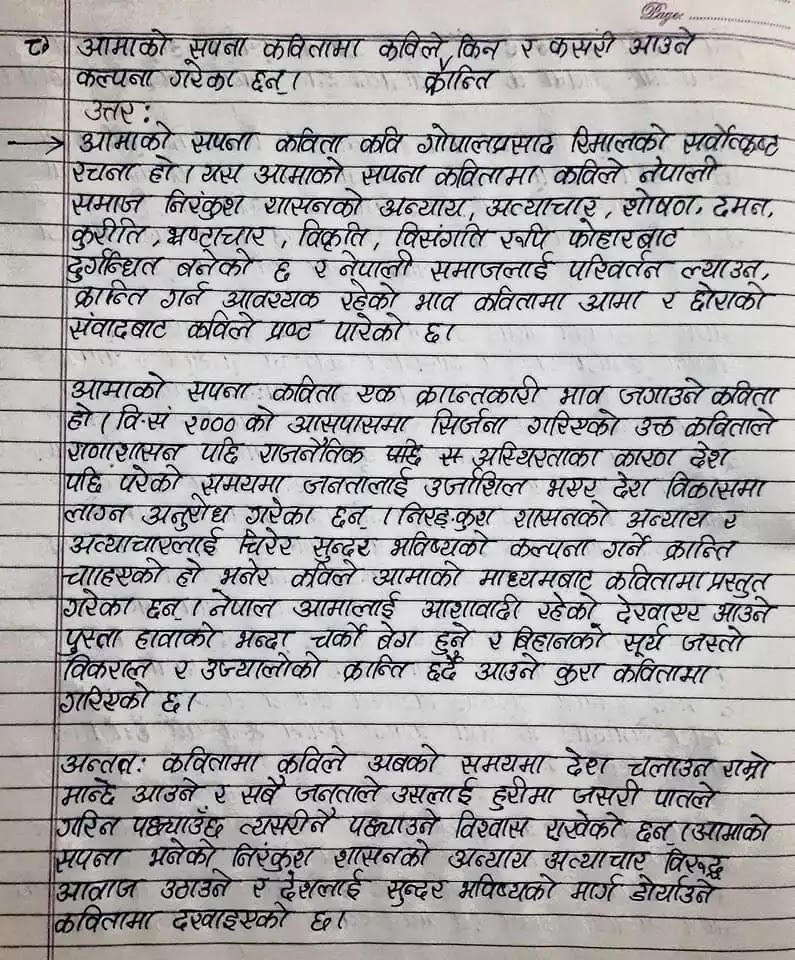 Page: ..............
८) आमाको सपना कवितामा कविले किन र कसरी आउने
कल्पना गरेका छन्। क्रान्ति
उत्तर:
→ आमाको सपना कविता कवि गोपालप्रसाद रिमालको सर्वोत्कृष्ट
रचना हो। यस आमाको सपना कवितामा कविले नेपाली
समाज निरंकुश शासनको अन्याय, अत्याचार, शोषण, दमन,
कुरीति, भ्रष्टाचार, विकृति, विसंगति रूपि फोहारबाट
दुर्गन्धित बनेको छ र नेपाली समाजलाई परिवर्तन ल्याउन,
क्रान्ति गर्न आवश्यक रहेको भाव कवितामा आमा र छोराको
संवादबाट कविले प्रष्ट पारेको छ।
आमाको सपना कविता एक क्रान्तकारी भाव जगाउने कविता
हो। वि.सं २००० को आसपासमा सिर्जना गरिएको उक्त कविताले
राणाशासन पछि राजनैतिक अस्थिरताका कारण देश
पछि परेको समयमा जनतालाई उर्जाशिल भएर देश विकासमा
लाग्न अनुरोध गरेका छन्। निरङ्कुश शासनको अन्याय र
अत्याचारलाई चिरेर सुन्दर भविष्यको कल्पना गर्ने क्रान्ति
चाहिएको हो भनेर कविले आमाको माध्यमबाट कवितामा प्रस्तुत
गरेका छन्। नेपाल आमालाई आशावादी रहेको देखाएर आउने
पुस्ता हावाको भन्दा चर्को बेग हुने र बिहानको सूर्य जस्तो
विकराल र उज्यालोको क्रान्ति छर्दै आउने कुरा कवितामा
गरिएको छ।
अन्तत: कवितामा कविले अबको समयमा देश चलाउन राम्रो
मान्छे आउने र सबै जनताले उसलाई हुरीमा जसरी पातले
गरिन पछ्याउँछ त्यसरीनै पछ्याउने विश्वास राखेको छन्। आमाको
सपना भनेको निरंकुश शासनको अन्याय अत्याचार विरूद्ध
आवाज उठाउने र देशलाई सुन्दर भविष्यको मार्ग डोर्याउने
कवितामा देखाइएको छ।